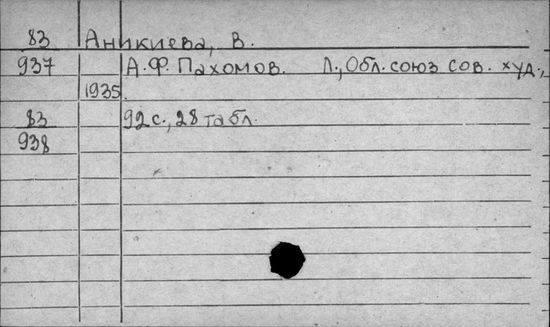 83 Аникиева, В.
937 А.Ф. Пахомов. Л., Обл. союз сов. худ.,
1935.
83 92 с., 28 табл.
938